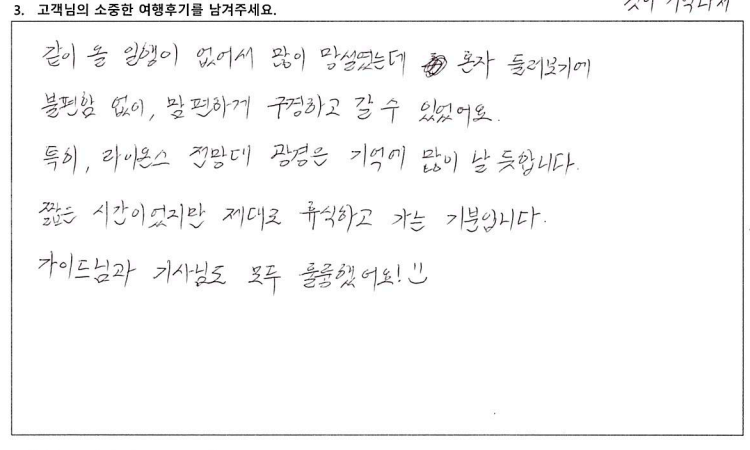 것이 기억나서
3. 고객님의 소중한 여행후기를 남겨주세요.
같이 올 일행이 없어서 많이 망설였는데 혼자 둘러보기에
불편함 없이, 맘 편하게 구경하고 갈 수 있었어요.
특히, 라이온스 전망대 광경은 기억에 많이 날 듯합니다.
짧은 시간이었지만 제대로 휴식하고 가는 기분입니다.
가이드님과 기사님도 모두 훌륭했어요!